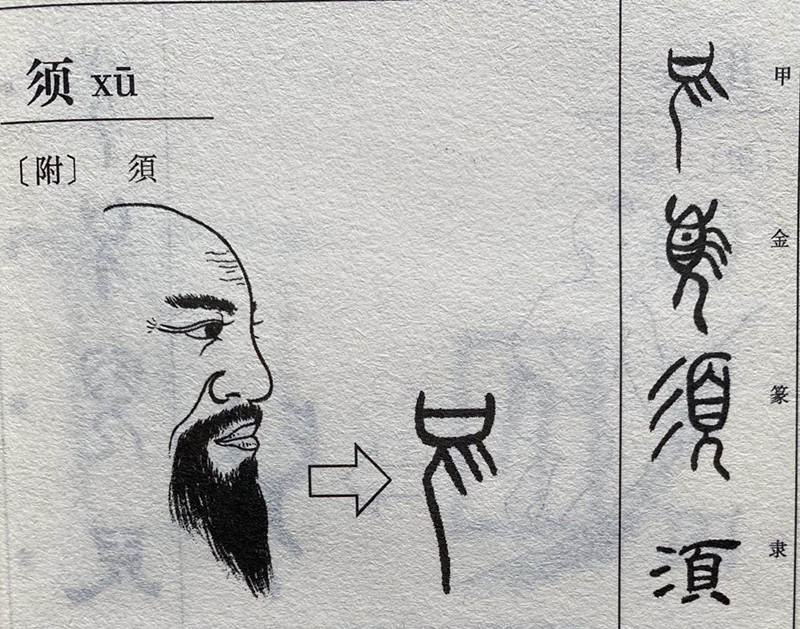 须 xū
〔附〕 須
甲
金
篆
須
隶
須